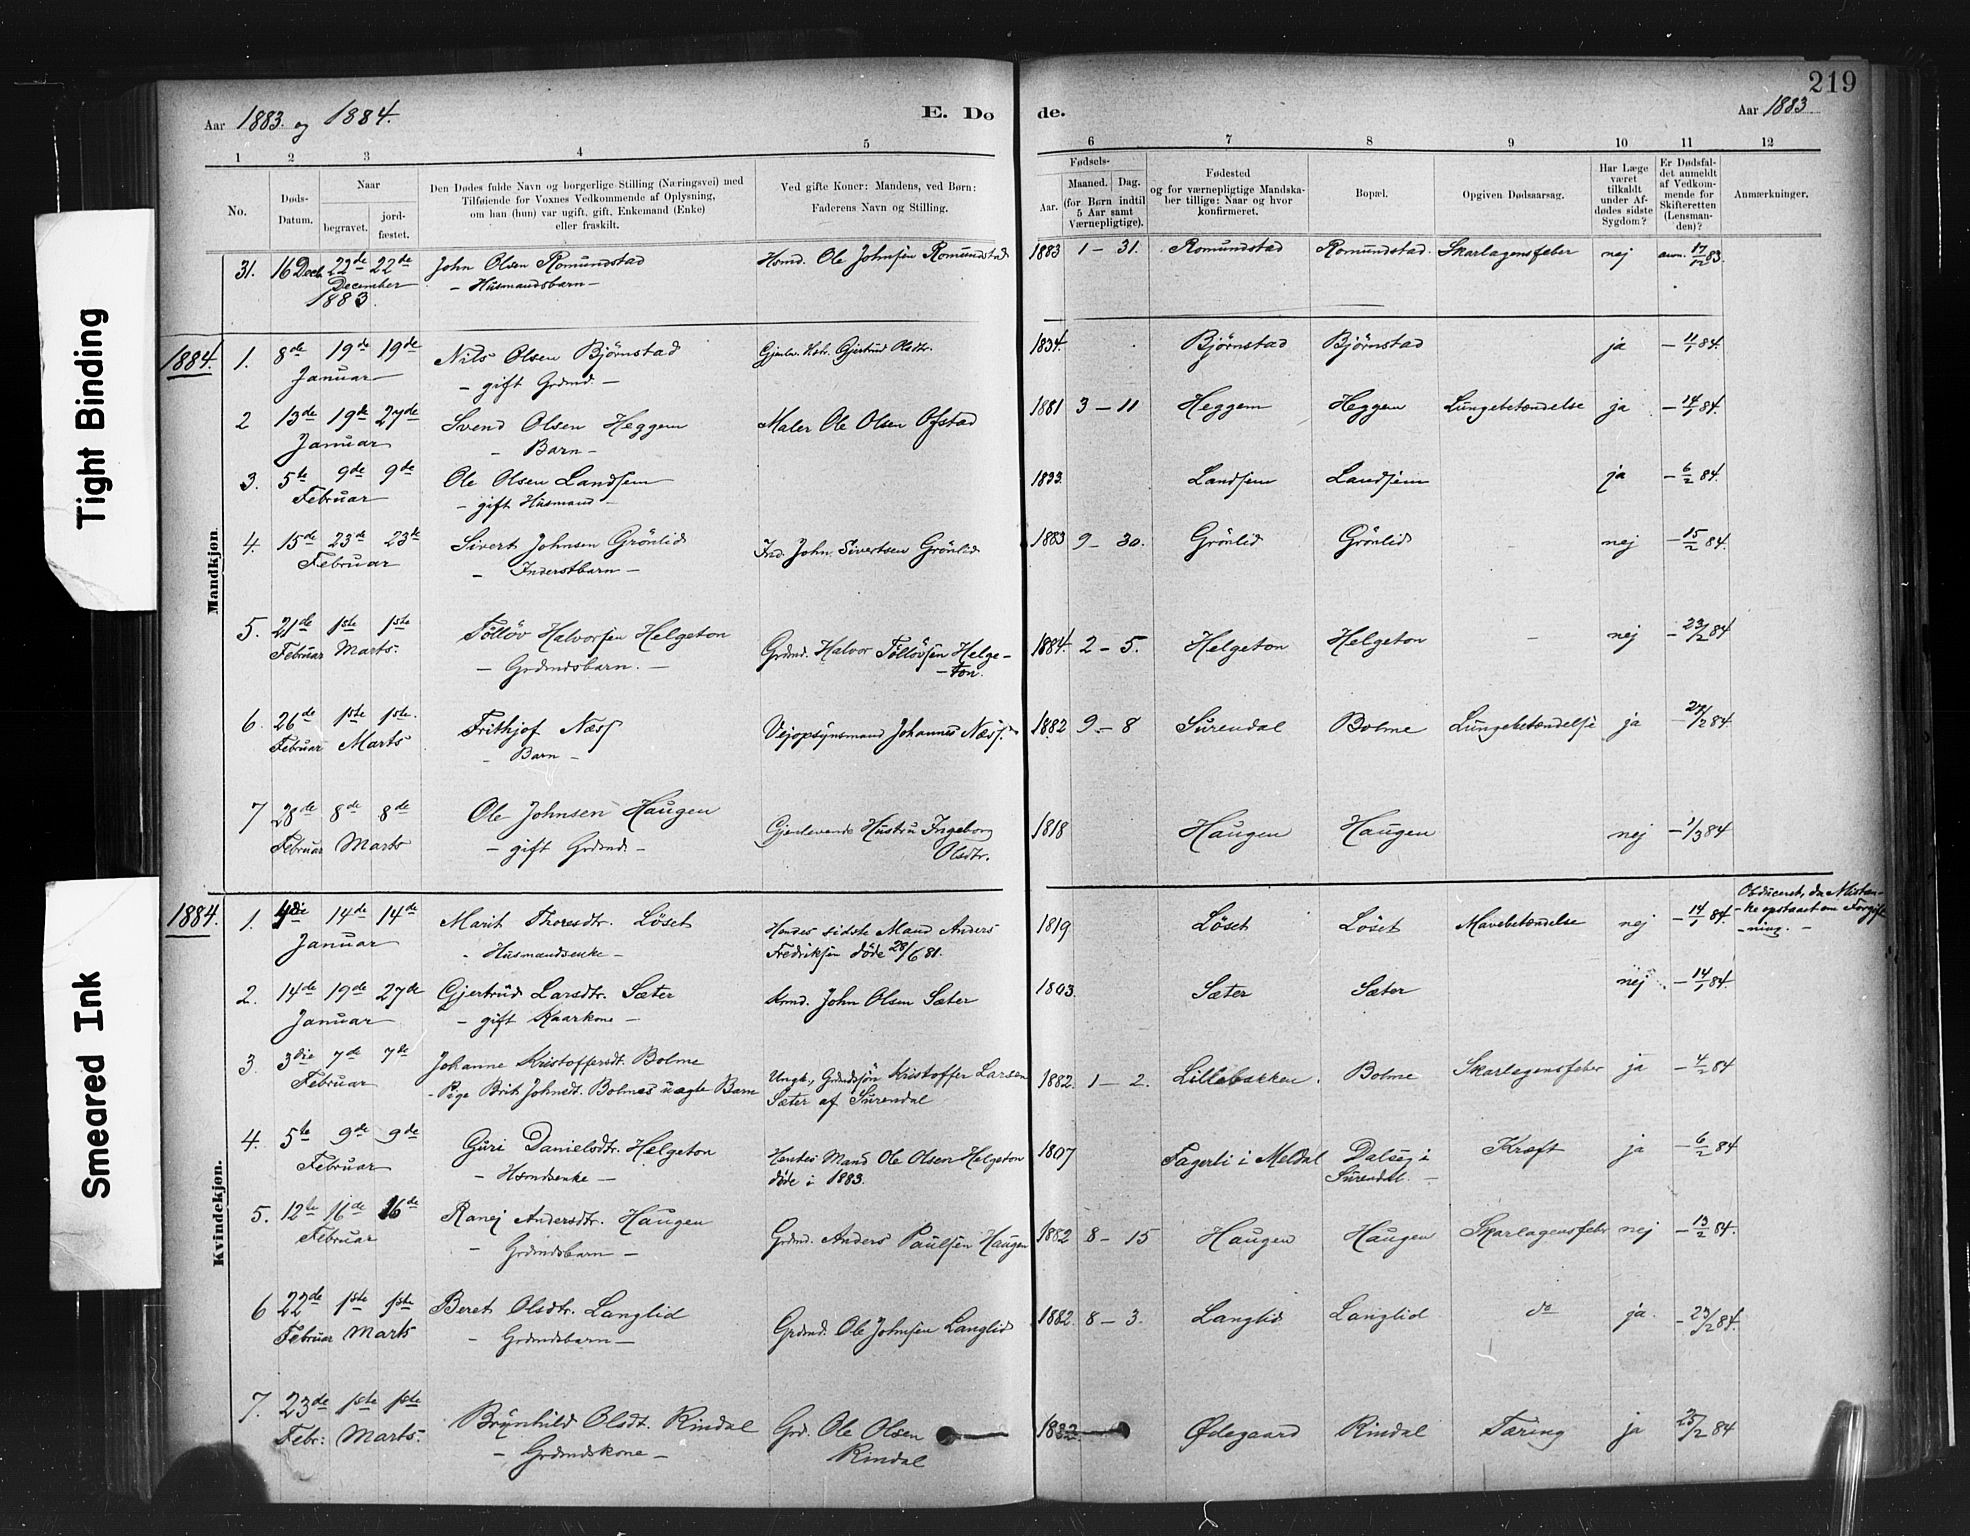 219
Aar 1883 og 1884. E. Døde. Aar 1883
1 2 3 4 5 6 7 8 9 10 11 12
No.
Døds-Datum.
Naar
begravet.
jordfæstet.
Den Dødes fulde Navn og borgerlige Stilling (Næringsvei) med
Tilføiende for Voxnes Vedkommende af Oplysning,
om han (hun) var ugift, gift, Enkemand (Enke)
eller fraskilt.
Ved gifte Koner: Mandens, ved Børn:
Faderens Navn og Stilling.
Fødsels-
Aar.
Maaned. Dag.
(for Børn indtil
5 Aar samt
Værnepligtige).
Fødested
og for værnepligtige Mandska-
ber tillige: Naar og hvor
konfirmeret.
Bopæl.
Opgiven Dødsaarsag.
Har Læge
været
tilkaldt
under Af-
dødes sidste
Sygdom?
Er Dødsfal-
det anmeldt
af Vedkom-
mende for
Skifteretten
(Lensman-
den)?
Anmærkninger.
31. 16 Dec. 22de 22de John Olsen Romundstad Hsmd. Ole Johnsen Romundstad 1883 1 - 31. Romundstad Romundstad. Skarlagensfeber nej anm. 17/12 83.
December - Husmandsbarn -
1883.
Mandkjøn
1884. 1. 8de 19de 19de Nils Olsen Bjørnstad Gjenlev. Hstr. Gjertrud Olsdtr. 1834. Bjørnstad Bjørnstad ja - 11/1 84.
Januar - gift Grdmd. -
2 13de 19de 27de Svend Olsen Heggem Maler Ole Olsen Ofstad 1881 3 - 11 Heggem Heggem Lungebetændelse ja - 14/1 84.
Januar - Barn -
3. 5te 9de 9de Ole Olsen Landsem 1833. Landsem Landsem ja - 6/2 84.
Februar - gift Husmand -
4. 15de 23de 23de Sivert Johnsen Grönlid Ind. John Sivertsen Grönlid 1883 9 - 30. Grönlid Grönlid nej - 15/2 84.
Februar - Inderstbarn -
5. 21de 1ste 1ste Tölløv Halvorsen Helgeton Grdmd. Halvor Tölløvsen Helge- 1884. 2 - 5. Helgeton Helgeton - nej - 23/2 84
Februar Marts. - Grdmdsbarn. - - ton.
6. 26de 1ste 1ste. Frithjof Næss Vejopsynsmand Johannes Næss. 1882 9 - 8 Surendal Bolme Lungebetændelse ja - 27/2 84
Februar Marts - Barn -
7 28de 8de 8de Ole Johnsen Haugen Gjenlevende Hustru Ingeborg 1818 Haugen Haugen nej - 1/3 84
Februar Marts - gift Grdmd. - Olsdtr.
Kvindekjøn.
1884. 1. 14de 14de Marit Thoresdtr. Löset Hendes sidste Mand Anders 1819 Löset Löset Mavebetændelse nej - 14/1 84. Obduceret, da Mistan-
Januar - Husmandsenke - Fredriksen døde 28/6 81. - ke opstaaet om Forgift-
- ning. -
2. 14de 19de 27de Gjertrud Larsdtr. Sæter John Olsen Sæter 1803. Sæter Sæter nej - 14/1 84.
Januar - gift Kaarkone -
3. 3die 7de 7de Johanne Kristoffersdt. Bolme Ungk., Grdmdssön Kristoffer Larsen 1882. 1 - 2. Lillebakken. Bolme Skarlagensfeber ja - 4/2 84
Februar - Pige Brit Johnsdt. Bolmes uægte Barn Sæter af Surendal
4. 5te 9de 9de Guri Danielsdtr. Helgeton Hendes Mand Ole Olsen Helgeton 1807 Fagerli i Meldal Dalseg i Kræft ja - 6/2 84
Februar - Hsmdsenke - døde i 1883. Surendal. -
5. 12te 16de 16de Ranej Andersdtr. Haugen Grdmd. Anders Paulsen Haugen 1882 8 - 15 Haugen Haugen Skarlagensfeber nej - 13/2 84.
Februar - Grdmdsbarn -
6 22de 1ste 1ste Beret Olsdtr. Langlid Grdmd. Ole Johnsen Langlid 1882. 8 - 3. Langlid Langlid do ja. - 23/2 84.
Februar Marts - Grdmdsbarn -
7. 23de 1ste 1ste Brynhild Olsdt. Rindal Grd. Ole Olsen Ødegaard Rindal Tæring ja 25/2 84
Febr: Marts. - Grdmdskone - Rindal
Tight Binding
Smeared Ink